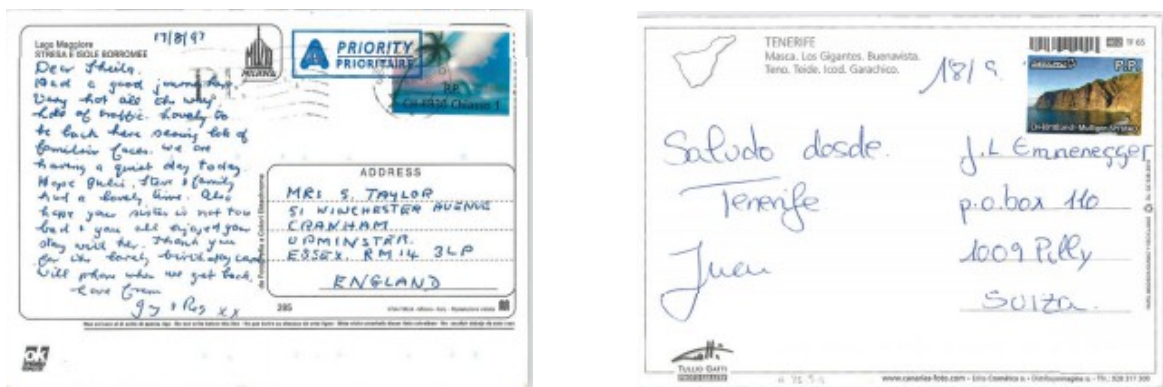 17/8/97
Lago Maggiore
STRESA E ISOLE BORROMEE
MILANO
A PRIORITY
PRIORITAIRE
P.P.
CH-6830 Chiasso 1
Dear Sheila,
Had a good journey
Very hot all the way.
Lots of traffic. Lovely to
be back here seeing lots of
familiar faces. We are
having a quiet day today.
Hope Julie, Steve & family
had a lovely time. Also
hope your sister is not too
bad & you all enjoyed your
stay with her. Thank you
for the lovely birthday card
Will phone when we get back.
Love from
ADDRESS
MRS S. TAYLOR
51 WINCHESTER AVENUE
CRANHAM
UPMINSTER.
ESSEX. RM14 3LP
ENGLAND
285
ok
TENERIFE
Masca. Los Gigantos. Buenavista.
Teno. Teide. Icod. Garachico.
TF 65
18/9.
P.P.
Saludo dosde.
Tenerife
Juan
J.L Emmenegger
p.o.box 110
1009 Pully
SUIZA.
TULLIO GATTI
www.canarias-foto.com